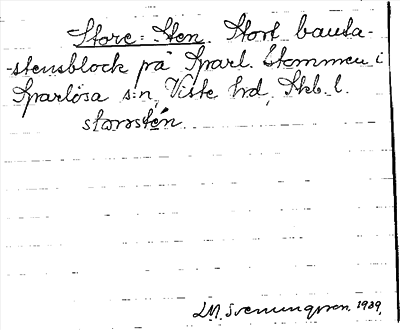 Store-Sten. Stort bauta-
-stensblock på Sparl. Stommen i
Sparlösa s:n, Viste hrd, Skb. l.
stórstén.
L.M. Svenungsson. 1939.